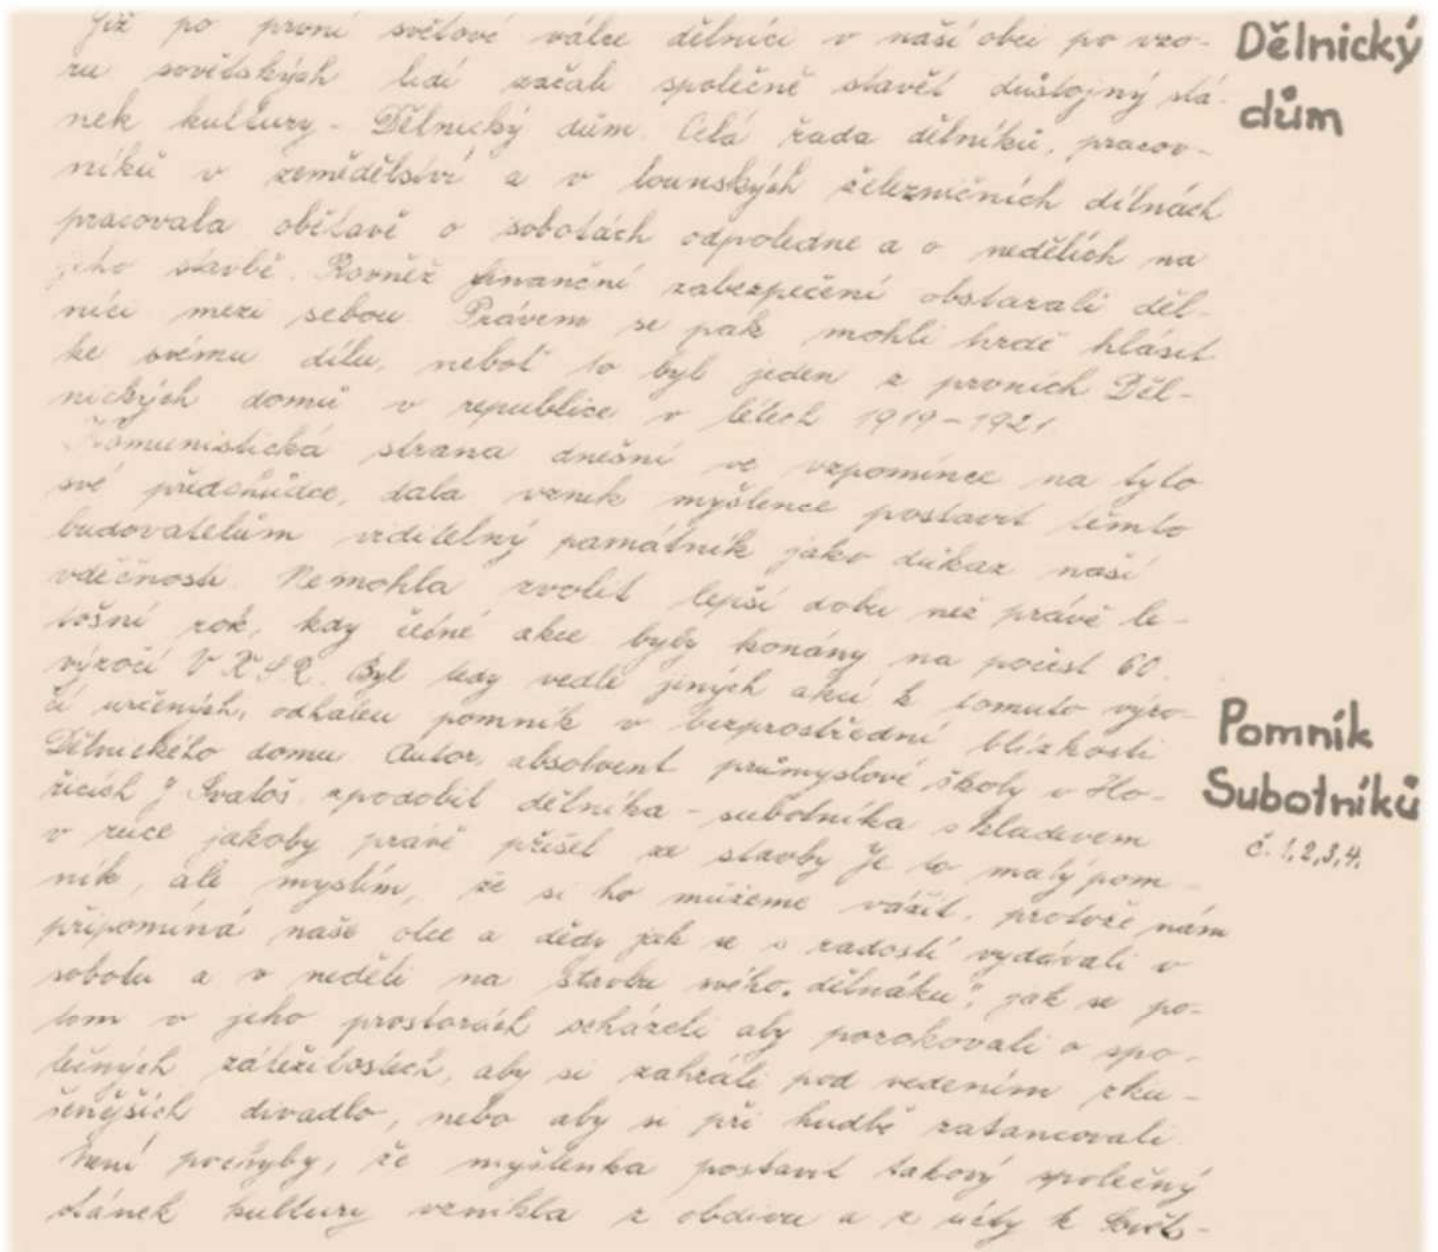 Již po první světové válce dělníci v naší obci po vzo-
ru sovětských lidí začali společně stavět důstojný stá-
nek kultury - Dělnický dům. Celá řada dělníků, pracov-
níků v zemědělství a v lounských železničních dílnách
pracovala obětavě o sobotách odpoledne a o nedělích na
jeho stavbě. Rovněž finanční zabezpečení obstarali děl-
níci mezi sebou. Právem se pak mohli hrdě hlásit
ke svému dílu, neboť to byl jeden z prvních Děl-
nických domů v republice v létech 1919-1921.
Komunistická strana dnešní ve vzpomínce na tyto
své předchůdce, dala vznik myšlence postavit těmto
budovatelům viditelný památník jako důkaz naší
vděčnosti. Nemohla zvolit lepší dobu než právě le-
tošní rok, kdy četné akce byly konány na počest 60.
výročí VŘSR. Byl tedy vedle jiných akcí k tomuto výro-
čí určených, odhalen pomník v bezprostřední blízkosti
Dělnického domu. Autor, absolvent průmyslové školy v Ho-
řicích J. Svatoš zpodobil dělníka - subotníka s kladivem
v ruce jakoby právě přišel ze stavby. Je to malý pom-
ník, ale myslím, že si ho můžeme vážit, protože nám
připomíná naše otce a dědy jak se s radostí vydávali v
sobotu a v neděli na stavbu svého "dělňáku", jak se po-
tom v jeho prostorách scházeli aby porokovali o spo-
lečných záležitostech, aby si zahráli pod vedením zku-
šenějších divadlo, nebo aby si při hudbě zatancovali.
Není pochyby, že myšlenka postavit takový společný
stánek kultury vznikla z obdivu a z úcty k Sovět-
Dělnický
dům
Pomník
Subotníků
č. 1,2,3,4.